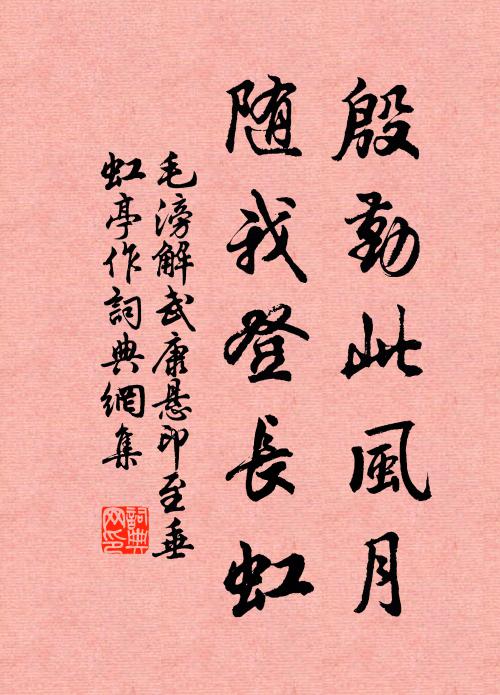 殷勤此風月
随我登長虹
毛滂解武康县印至垂
虹亭作詞典網集
詞典网印